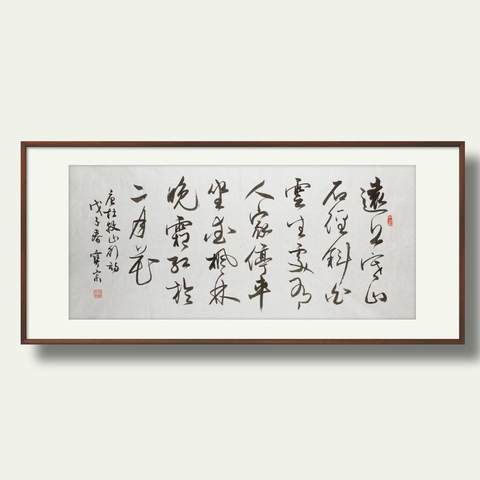 遠上寒山
石徑斜白
雲生處有
人家停車
坐愛楓林
晚霜紅於
二月花
唐杜牧山行詩
戊子春